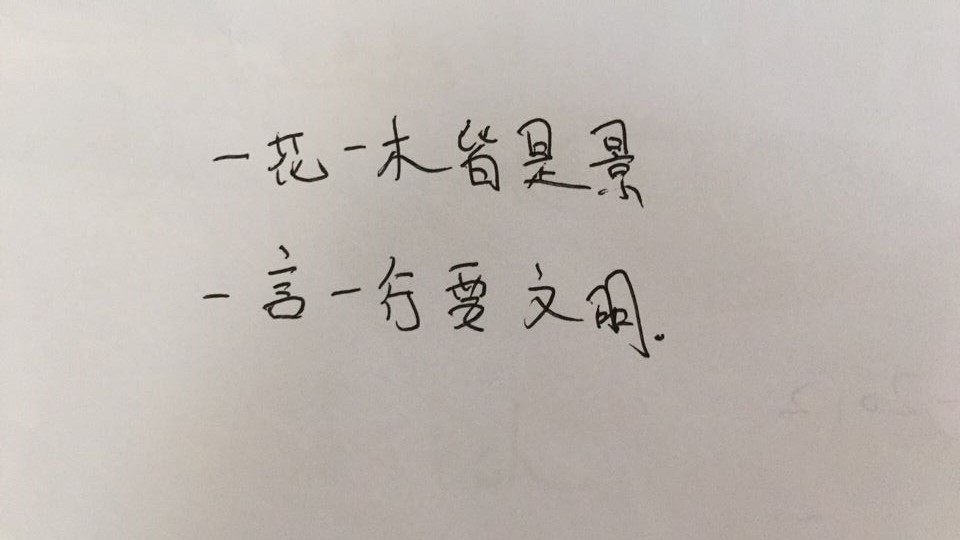 一花一木皆是景
一言一行要文明.